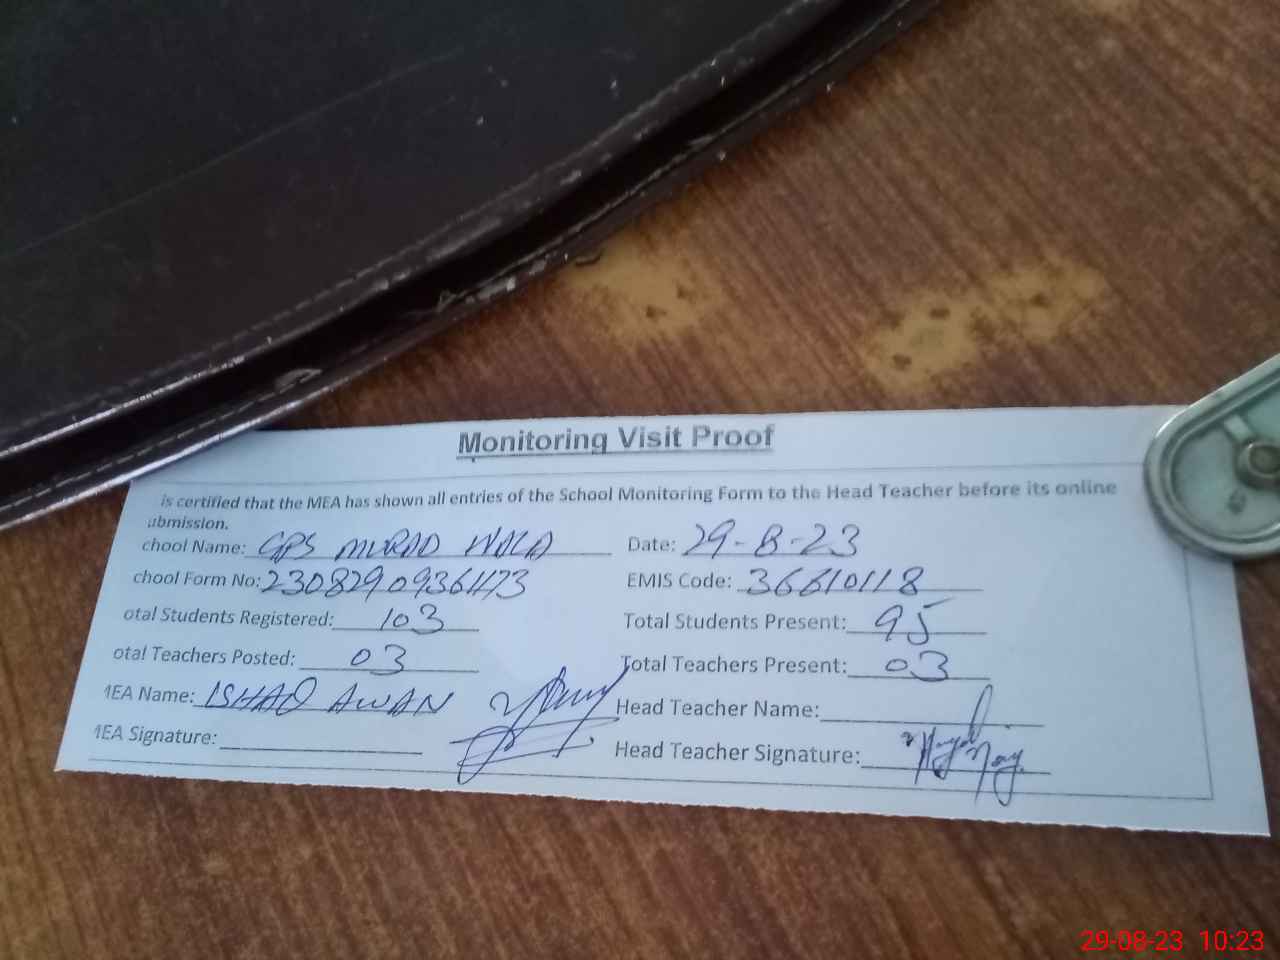 Monitoring Visit Proof
is certified that the MEA has shown all entries of the School Monitoring Form to the Head Teacher before its online
ubmission.
chool Name: GPS MURAD WALA Date: 29-8-23
chool Form No: 2308290936473 EMIS Code: 36610118
otal Students Registered: 103 Total Students Present: 95
otal Teachers Posted: 03 Total Teachers Present: 03
MEA Name: ISHAQ AWAN Head Teacher Name:
MEA Signature: Head Teacher Signature:
29-08-23 10:23